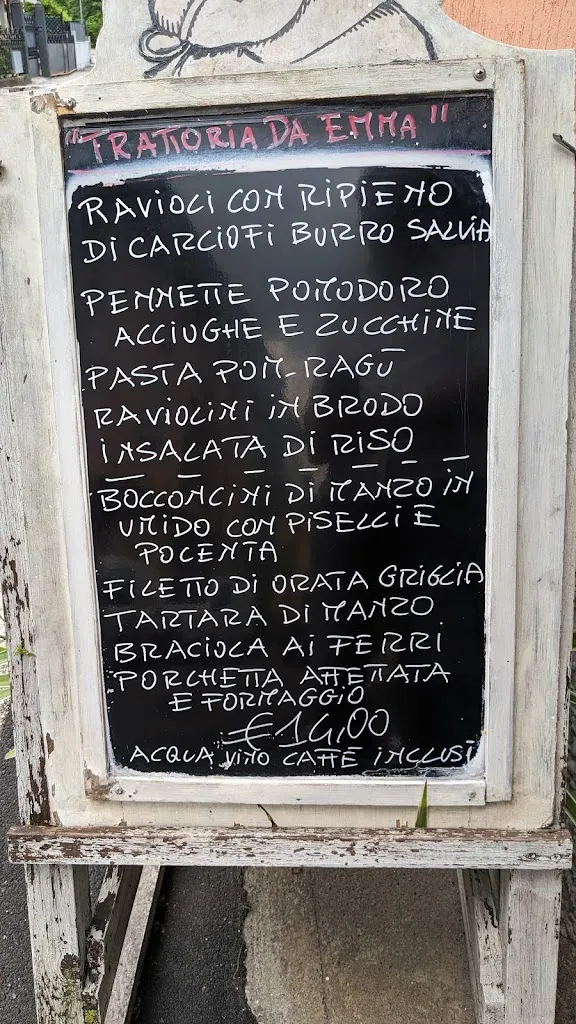 "TRATTORIA DA EMMA"
RAVIOLI CON RIPIENO
DI CARCIOFI BURRO SALVIA
PENNETTE POMODORO
ACCIUGHE E ZUCCHINE
PASTA POM-RAGÙ
RAVIOLINI IN BRODO
INSALATA DI RISO
BOCCONCINI DI MANZO IN
UMIDO CON PISELLI E
POLENTA
FILETTO DI ORATA GRIGLIA
TARTARA DI MANZO
BRACIOLA AI FERRI
PORCHETTA AFFETTATA
E FORMAGGIO
€14,00
ACQUA VINO CAFFÈ INCLUSI